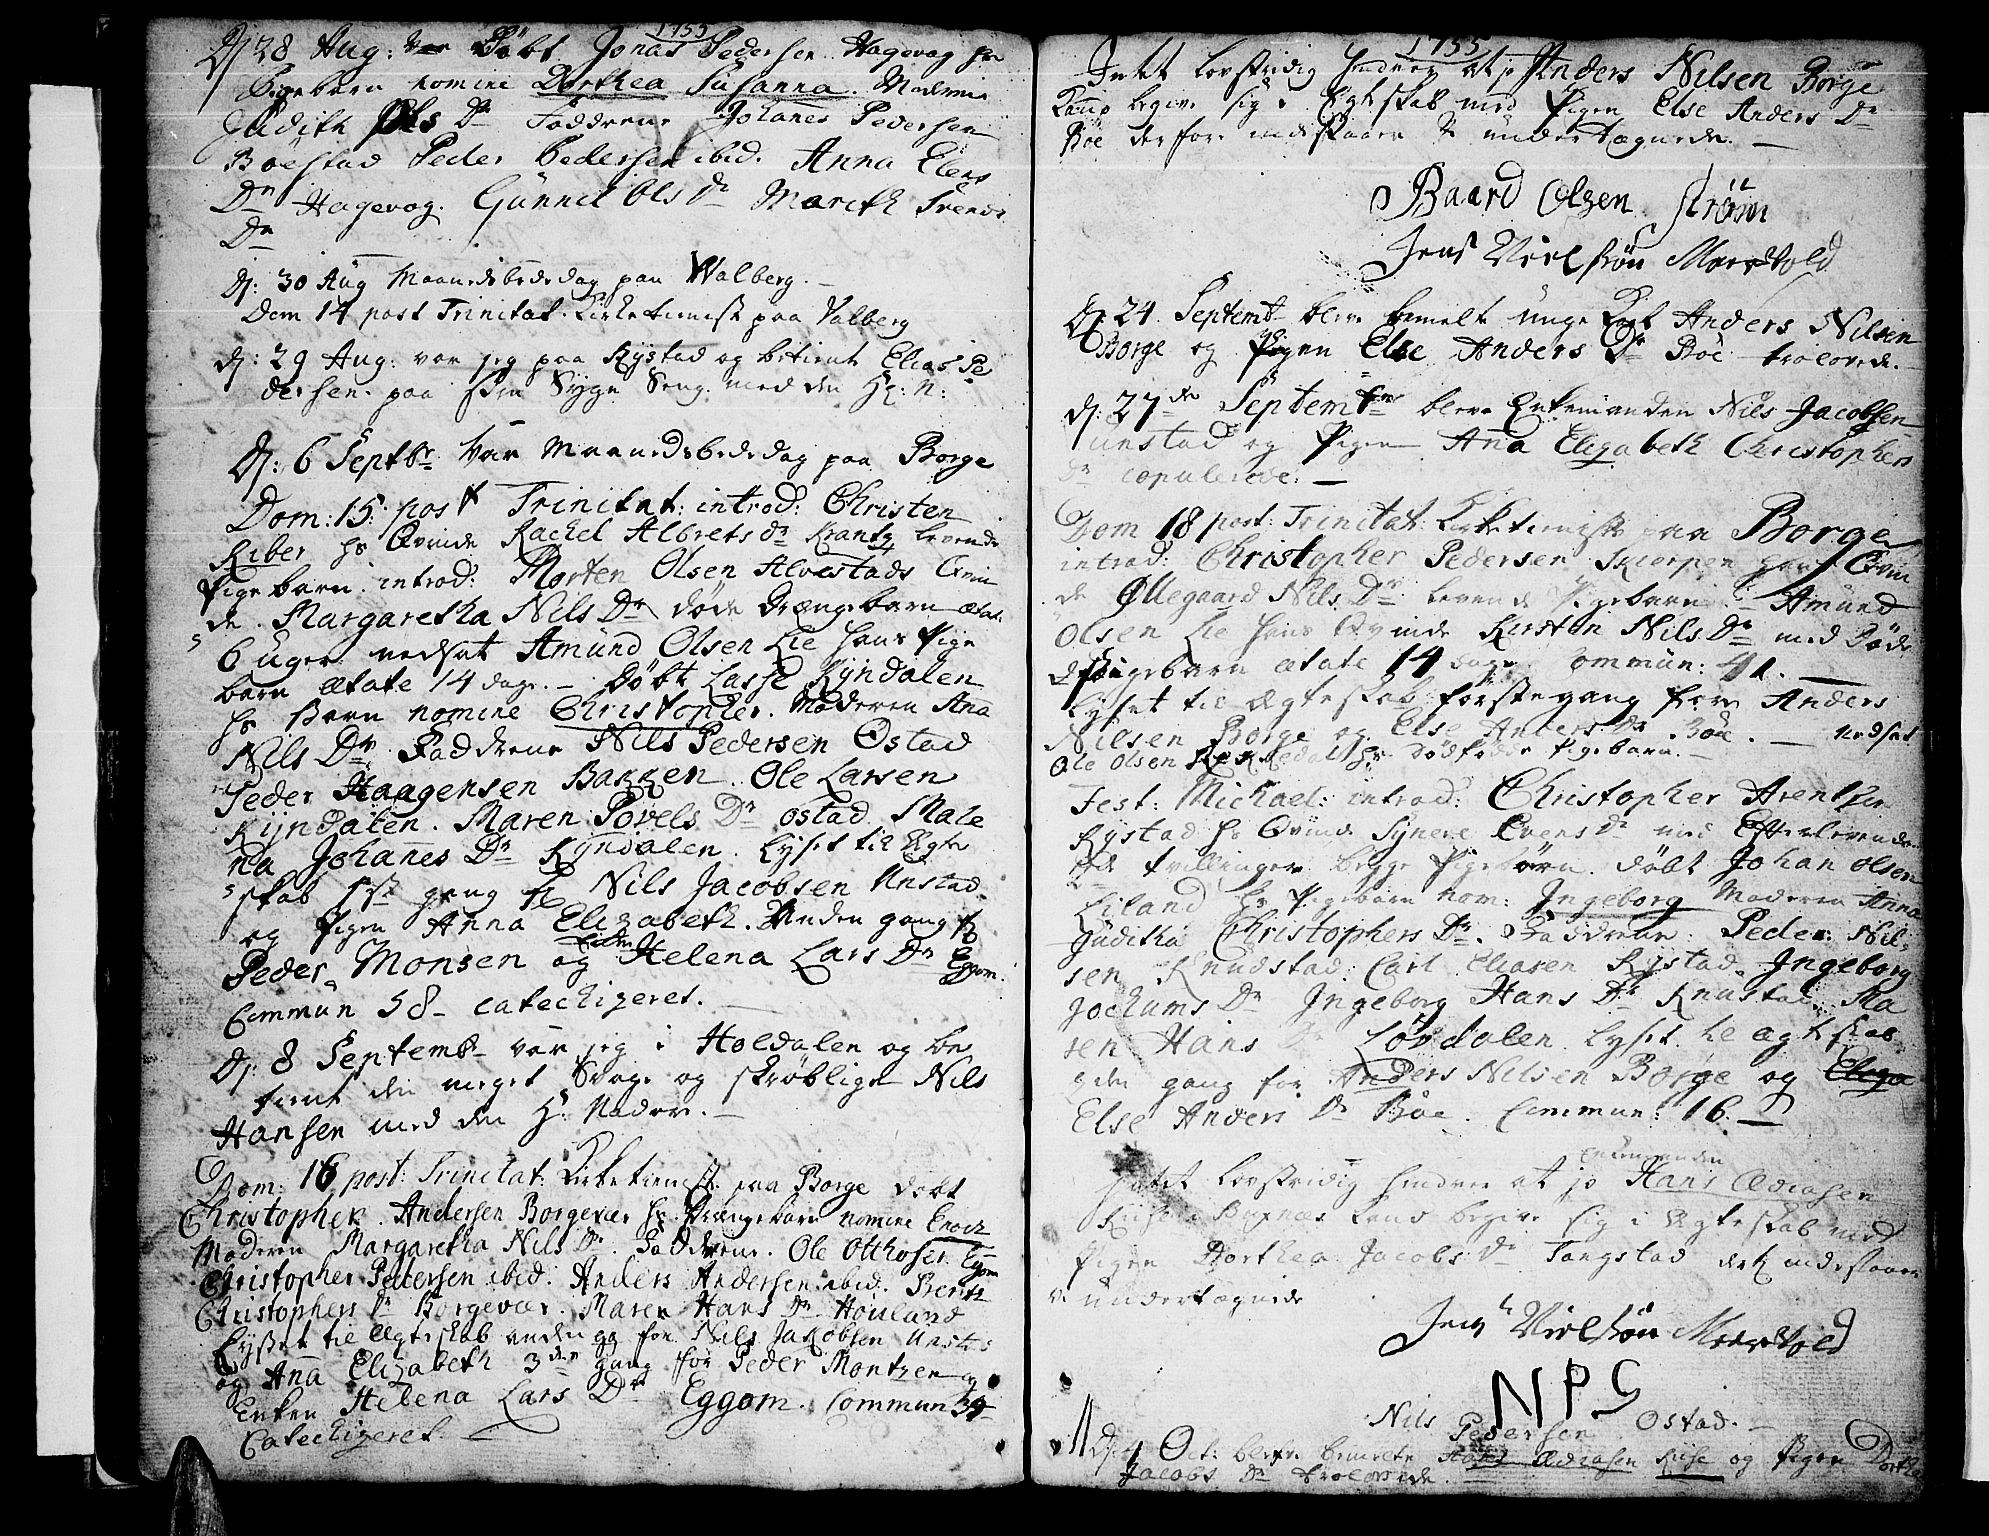 1755
Dj 28 Aug: Döbt Jonas Pedersen Hagevog hs
Pigebarn nomine Dorthea Susanna. Moderen
Judith Ols Dr Faddrene Johanes Pedersen
Böestad Peder Pedersen ibid. Anna Elens
Dr Hagevog. Günnil Ols Dr Mareth Svends
Dr
Dj: 30 Aug Maanedsbededag paa Walberg.
Dom 14 post Trinitat. Kirketieniste paa Valberg
Dj: 29 Aug: var jeg paa Rystad og betient Elias Pe
dersen paa sin Syge Seng med den H: N:
Dj: 6 Septbr var Maanedsbededag paa Borge
Dom: 15: post Trinitat: introd: Christen
Riber hs Qvinde Rachel Albrets Dr Krantz levende
Pigebarn. introd: Morten Olsen Alvestads Qvin
de Margaretha Nils Dr döde Drængebarn ætat.
6 Uger nedsat Amünd Olsen Lie hans Pige
barn ætate 14 dage. – Döbt Lasse Kyndalen
hs Barn nomine Christopher. Moderen Ana
Nils Dr. Faddrene Nils Pedersen Ostad
Peder Haagensen Bakken. Ole Larsen
Kyndalen. Maren Povels Dr Ostad. Male
na Johanes Dr Kyndalen. Lyset til Ægte
skab 1ste gang for Nils Jacobsen Unstad
og Pigen Anna Elizabeth. Anden gang for
Peder Monsen og Enken Helena Lars Dr Eggom.
Commün 58 – catechizeret. –
Dj: 8 Septemb – var jeg i Holdalen og be
tient den meget Svage og skröblige Nils
Hansen med den H: Nadver. –
Dom: 16 post: Trinitat: Kirketienst: paa Borge döbt
Christopher Andersen Borgevær hs Drængebarn nomine Enoch
Moderen Margaretha Nils Dr. Faddrene. Ole Otthosen Egom
Christopher Pedersen ibid. Anders Andersen ibid. Berith
Christophers Dr Borgevær. Maren Hans Dr Houland
Lyset til Ægteskab anden gg for Nils Jakobsen Unstad
og Ana Elizabeth 3die gang for Peder Montzen og
Enken Helena Lars Dr Eggom. Commun 39 –
Catechizeret. –
1755
Intet lovstridig hindrer at jo Anders Nilsen Borge
kand begive sig i Egteskab med Pigen Else Anders Dr
Böe derfore indestaaer vi undertegnede. –
Baard Olsen Ström
Jens Nielsön Marsvold
Dj 24 Septemb – bleve bemelte unge Karl Anders Nilsen
Borge og Pigen Else Anders Dr Böe trolovede.
dj: 27de Septembr bleve Enkemanden Nils Jacobsen
Unstad og Pigen Ana Elizabeth Christophers
Dr copulerede. –
Dom 18 post: Trinitat: Kirketieniste paa Borge
introd: Christopher Pedersen Skierpen hans Qvin
de Øllegaard Nils Dr levende Pigebarn – Amünd
Olsen Lie hans Qvinde Kirsten Nils Dr med Döde
Pigebarn ætate 14 dage. Commün: 41. –
Lyset til Ægteskab forste gang for Anders
Nilsen Borge og Else Anders Dr Böe. – nedsat
Ole Olsen hs dödfödde Pigebarn –
Fest: Michael: introd: Christopher Arentsen
Rystad hs Qvinde Synere Evens Dr med Efterlevende
tvillinger begge Pigebörn. Döbt Johan Olsen
Eiland hs Pigebarn nom: Ingeborg Moderen Anna
Jüditha Christophers Dr. Faddrene Peder Nil-
sen Knudstad. Carl Eliasen Rystad. Ingeborg
Jochums Dr Ingeborg Hans Dr Knustad. Ma
ren Hans Dr Lövdalen. Lyset til Ægteskab
2den gang for Anders Nilsen Borge og Eliza
Else Anders Dr Böe. Commun: 16. –
enkemanden
Intet lovstridig hindrer at jo Hans Adriasen
Kiise i Buxnæs kand begive sig i Ægteskab med
Pigen Dorthea Jacobs Dr Tangstad dertil indestaaer
vi undertegnede
Jens Nielsön Marsvold
NPS
Nils Pedersen Ostad. –
Dj: 4 Oct: bleve bemelte Hans Adriasen Kiise og Pigen Dorthe
Jacobs Dr trolovede.